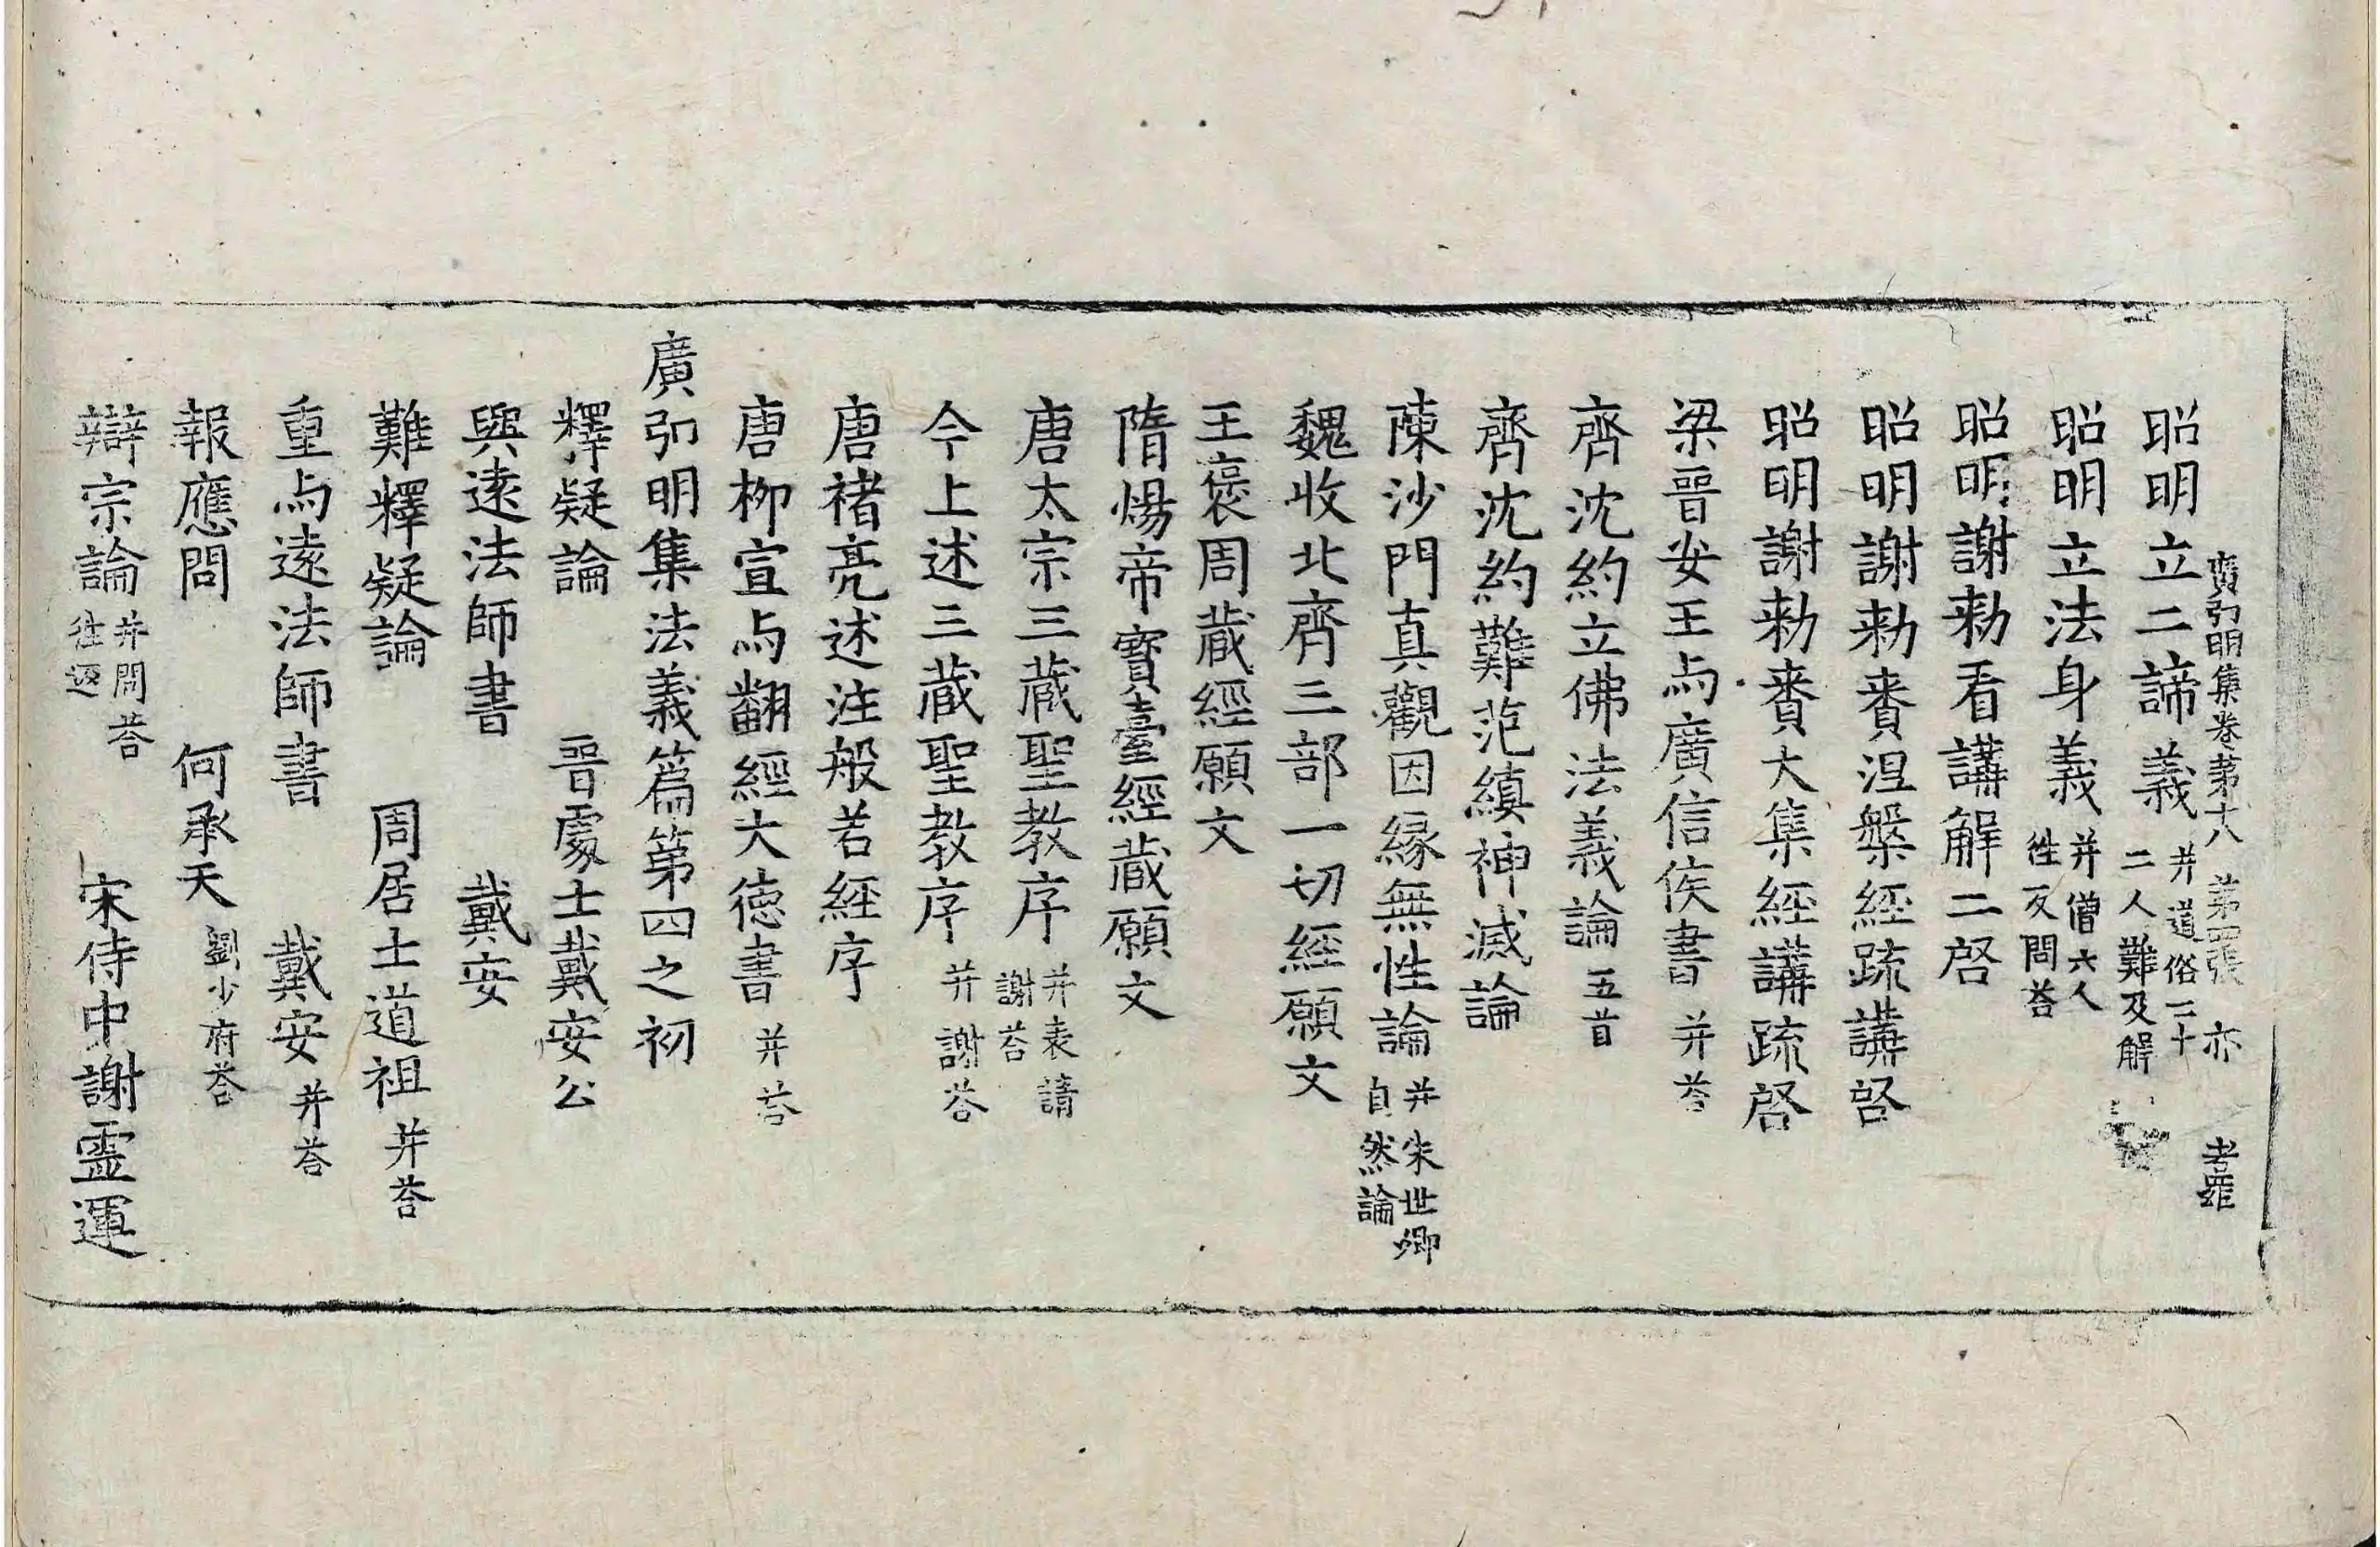 廣弘明集卷第十八 第四張 亦
昭明立二諦義 并道俗二十二人難及解
昭明立法身義 并僧六人往反問荅
昭明謝勑看講解二啓
昭明謝勑賚涅槃經疏講啓
昭明謝勑賚大集經講疏啓
梁晉安王与廣信侯書 并荅
齊沈約立佛法義論 五首
齊沈約難范縝神滅論
陳沙門真觀因緣無性論 并朱世卿自然論
魏收北齊三部一切經願文
王褒周蔵經願文
隋煬帝寶臺經蔵願文
唐太宗三蔵聖教序 并表請謝荅
今上述三蔵聖教序 并謝荅
唐褚亮述注般若經序
唐柳宣与翻經大德書 并荅
廣弘明集法義篇第四之初
釋疑論 晉處士戴安公
與遠法師書 戴安
難釋疑論 周居士道祖 并荅
重与遠法師書 戴安 并荅
報應問 何承天 劉少府荅
辯宗論 并問荅往返 宋侍中謝霊運